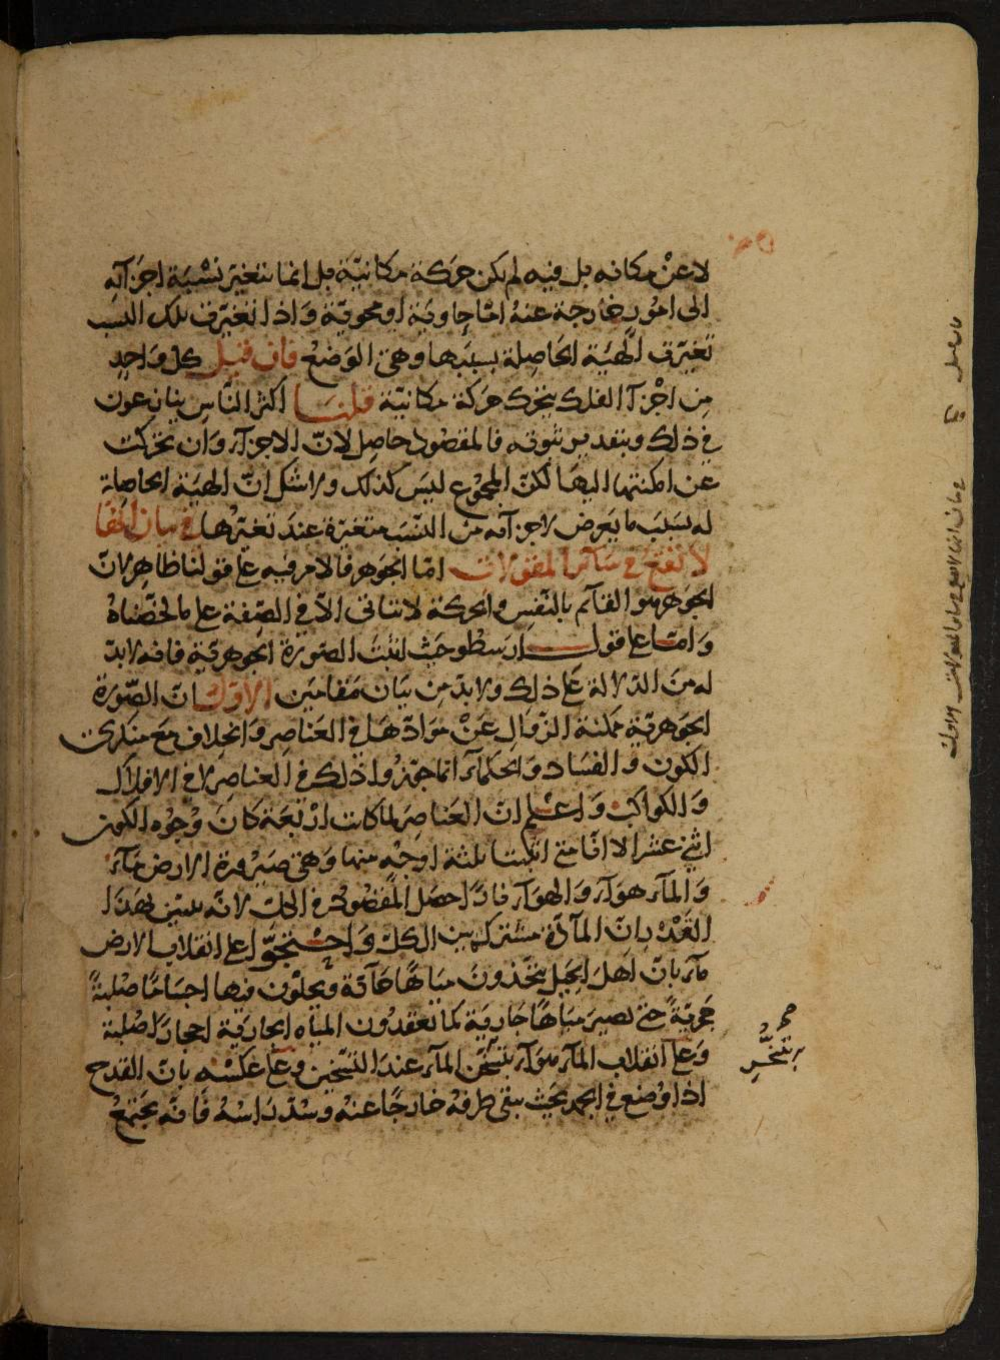 لا عن مكانه بل فيه لم يكن حركة مكانية بل انما تتغير نسبة اجزائه
الى امور خارجة عنه اما حاوية او محوية واذا تغيرت تلك النسب
تغيرت الهيئة الحاصلة بسببها وهى الوضع فان قيل كل واحد
من اجزآ الفلك يتحرك حركة مكانية قلنا اكثر الناس ينازعون
فى ذلك وبتقدير ثبوته فالمقصود حاصل لان الاجزآ وان تحركت
عن امكنتها لكن المجموع ليس كذلك ولا شك ان الهيئة الحاصلة
له بسبب ما يعرض لاجزآئه من النسب متغيرة عند تغيرها فى بيان انها
لا تقع فى سائر المقولات اما الجوهر فالامر فيه على قولنا ظاهر لان
الجوهر هو القآئم بالنفس والحركة لا تتاتى الا فى الصفة على ما لخصناه
واما على قول ارسطو حيث اثبت الصورة الجوهرية فانه لابد
له من الدلالة على ذلك ولابد من بيان مقامين الاول ان الصورة
الجوهرية ممكنة الزوال عن موادها فى العناصر والخلاف مع منكرى
الكون والفساد والحكمآء انما جوزوا ذلك فى العناصر لا فى الافلاك
والكواكب واعلم ان العناصر لما كانت اربعة كان وجوه الكون
اثنى عشر الا انا متى اثبتنا ثلثة اوجه منها وهى صيرورة الارض مآء
والمآء هوآء والهوآء نارا حصل المقصود فى الكل لانه يتبين بهذا
القدر ان المآدة مشتركة بين الكل واحتجوا على انقلاب الارض
مآء بان اهل الحيل يتخذون مياها حآدة ويحلون فيها اجساما صلبة
حجرية حتى تصير مياها جارية كما تعقدون المياه الجارية احجارا صلبة
وعلى انقلاب المآء هوآء بتسخن المآء عند التسخين وعلى عكسه بان القدح
اذا وضع فى الجمد بحيث يبقى طرفه خارجا عنه وسد راسه فانه يجتمع